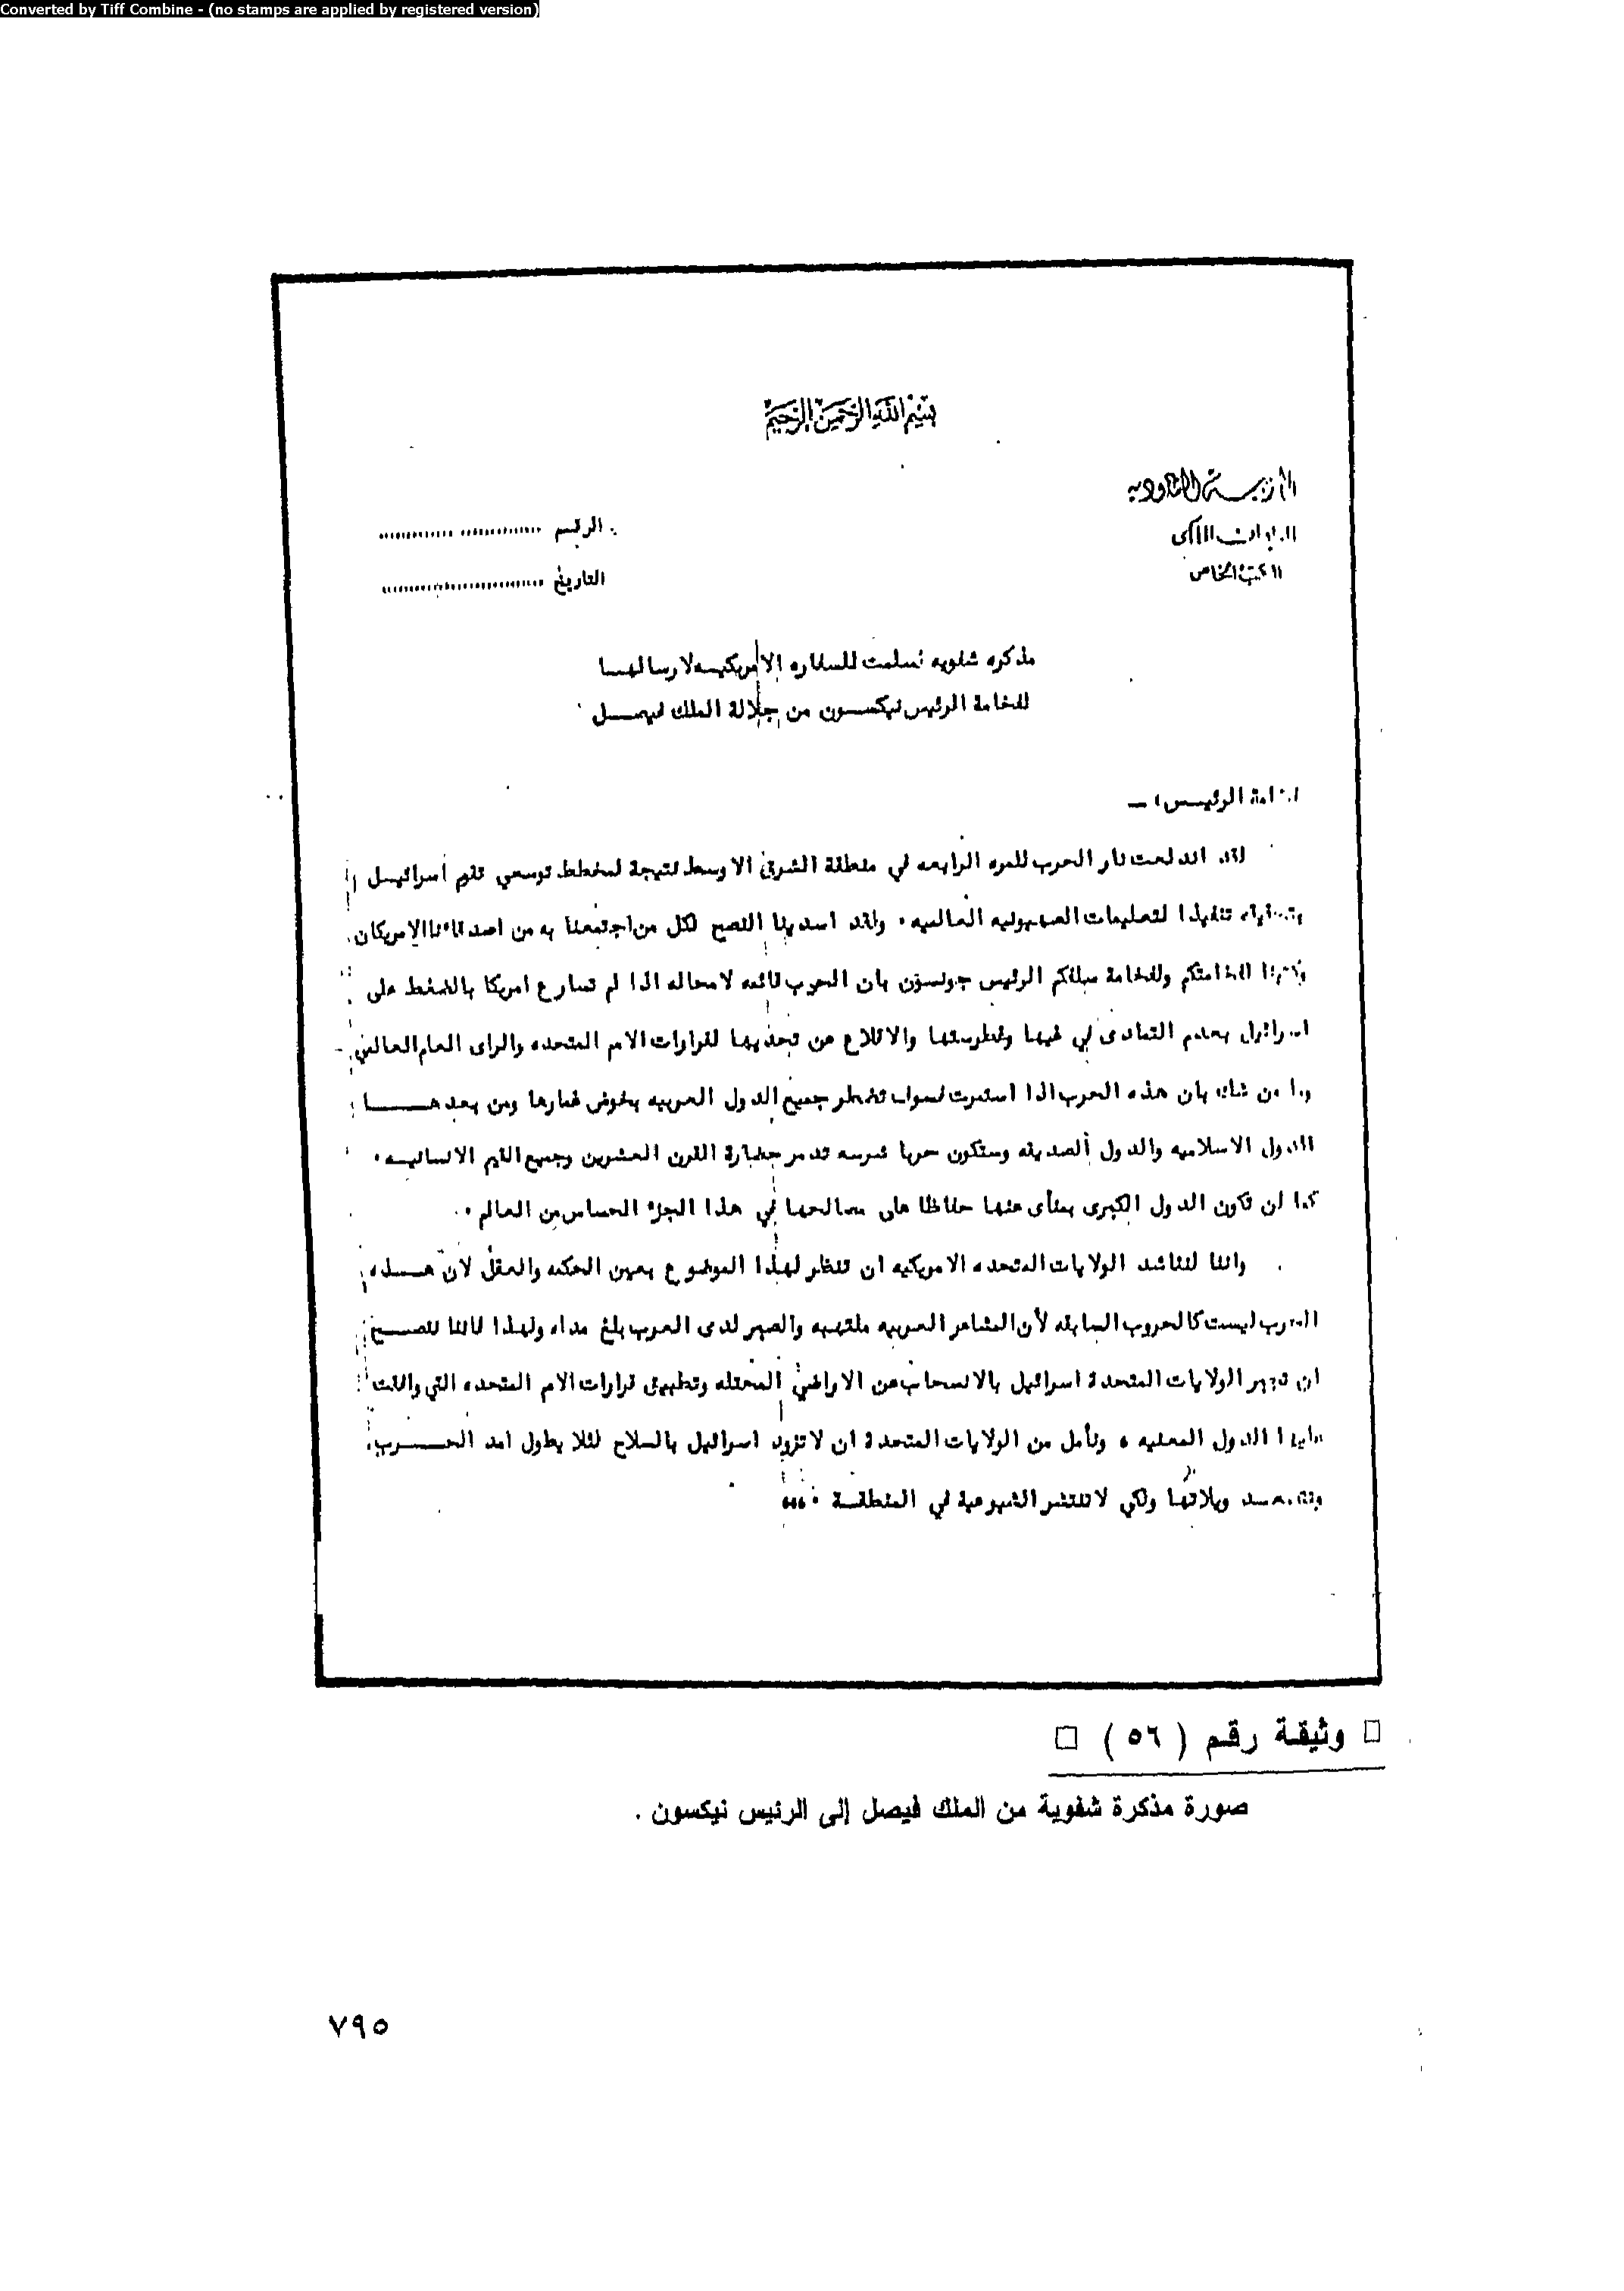 Converted by Tiff Combine - (no stamps are applied by registered version)
بسم الله الرحمن الرحيم
الرقم ........................
المكتب الخاص
التاريخ ........................
مذكره شفويه سلمت للسفاره الامريكيه لارسالها
لفخامة الرئيس نيكسون من جلالة الملك فيصل
فخامة الرئيس، —
لقد اندلعت نار الحرب للمره الرابعه في منطقة الشرق الاوسط نتيجة لمخطط توسعي تقوم اسرائيل
تنفيذا لتعليمات الصهيونيه العالميه . ولقد اسدينا النصح لكل من اجتمعنا به من اصدقائنا الامريكان
لفخامتكم ولفخامة سلفكم الرئيس جونسون بان الحرب قائمه لا محاله اذا لم تسارع امريكا بالضغط على
اسرائيل بعدم التمادى في غيها وغطرستها والاقلاع عن تحديها لقرارات الامم المتحده والراى العام العالمي
وما من شك بان هذه الحرب اذا استمرت لسوف تضطر جميع الدول العربيه بخوض غمارها ومن بعدهـا
الدول الاسلاميه والدول الصديقه وستكون حربا شرسه تدمر حضارة القرن العشرين وجميع القيم الانسانيه .
كما لن تكون الدول الكبرى بمنأى عنها حفاظا على مصالحها في هذا الجزء الحساس من العالم .
واننا لنناشد الولايات المتحده الامريكيه ان تنظر لهذا الموضوع بعين الحكمه والعقل لان هـذه
الحرب ليست كالحروب السابقه لأن المشاعر العربيه ملتهبه والصبر لدى العرب بلغ مداه ولهذا فاننا ننصح
ان تجبر الولايات المتحدة اسرائيل بالانسحاب من الاراضي المحتله وتطبيق قرارات الامم المتحده التي وافقت
عليها الدول المعنيه ، ونأمل من الولايات المتحدة ان لا تزود اسرائيل بالسلاح لئلا يطول امد الحـرب
ويلاتها ولكي لا تنتشر الشيوعية في المنطقة ....
□ وثيقة رقم ( ٥٦ ) □
صورة مذكرة شفوية من الملك فيصل إلى الرئيس نيكسون .
٧٩٥